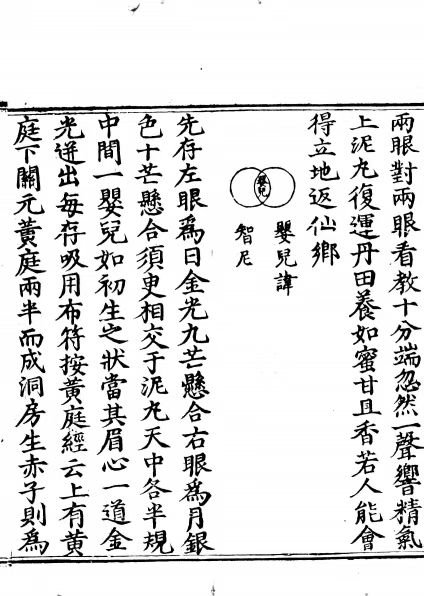 兩眼對兩眼看教十分端忽然一聲響精氣
上泥丸復運丹田養如蜜甘且香若人能會
得立地返仙鄉
嬰兒
嬰兒諱
智尼
先存左眼爲日金光九芒懸合右眼爲月銀
色十芒懸合須更相交于泥丸天中各半規
中間一嬰兒如初生之狀當其眉心一道金
光迸出每存吸用布符按黃庭經云上有黃
庭下關元黃庭兩半而成洞房生赤子則爲